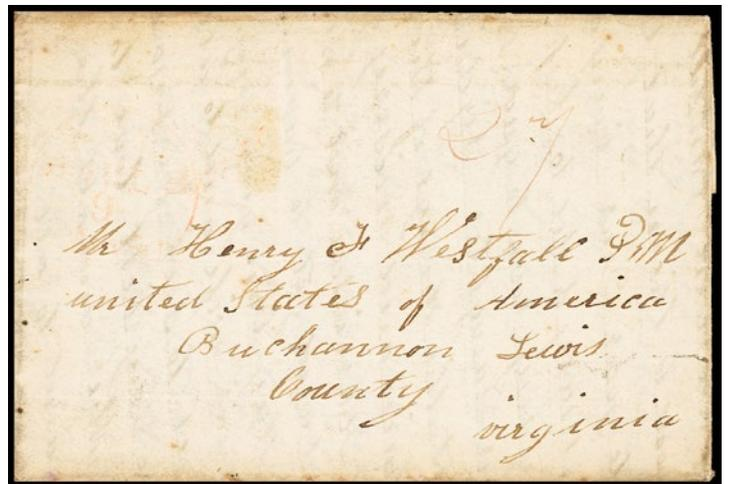 27
Mr Henry F Westfall P.M
united States of America
Buchannon Lewis
County
virginia